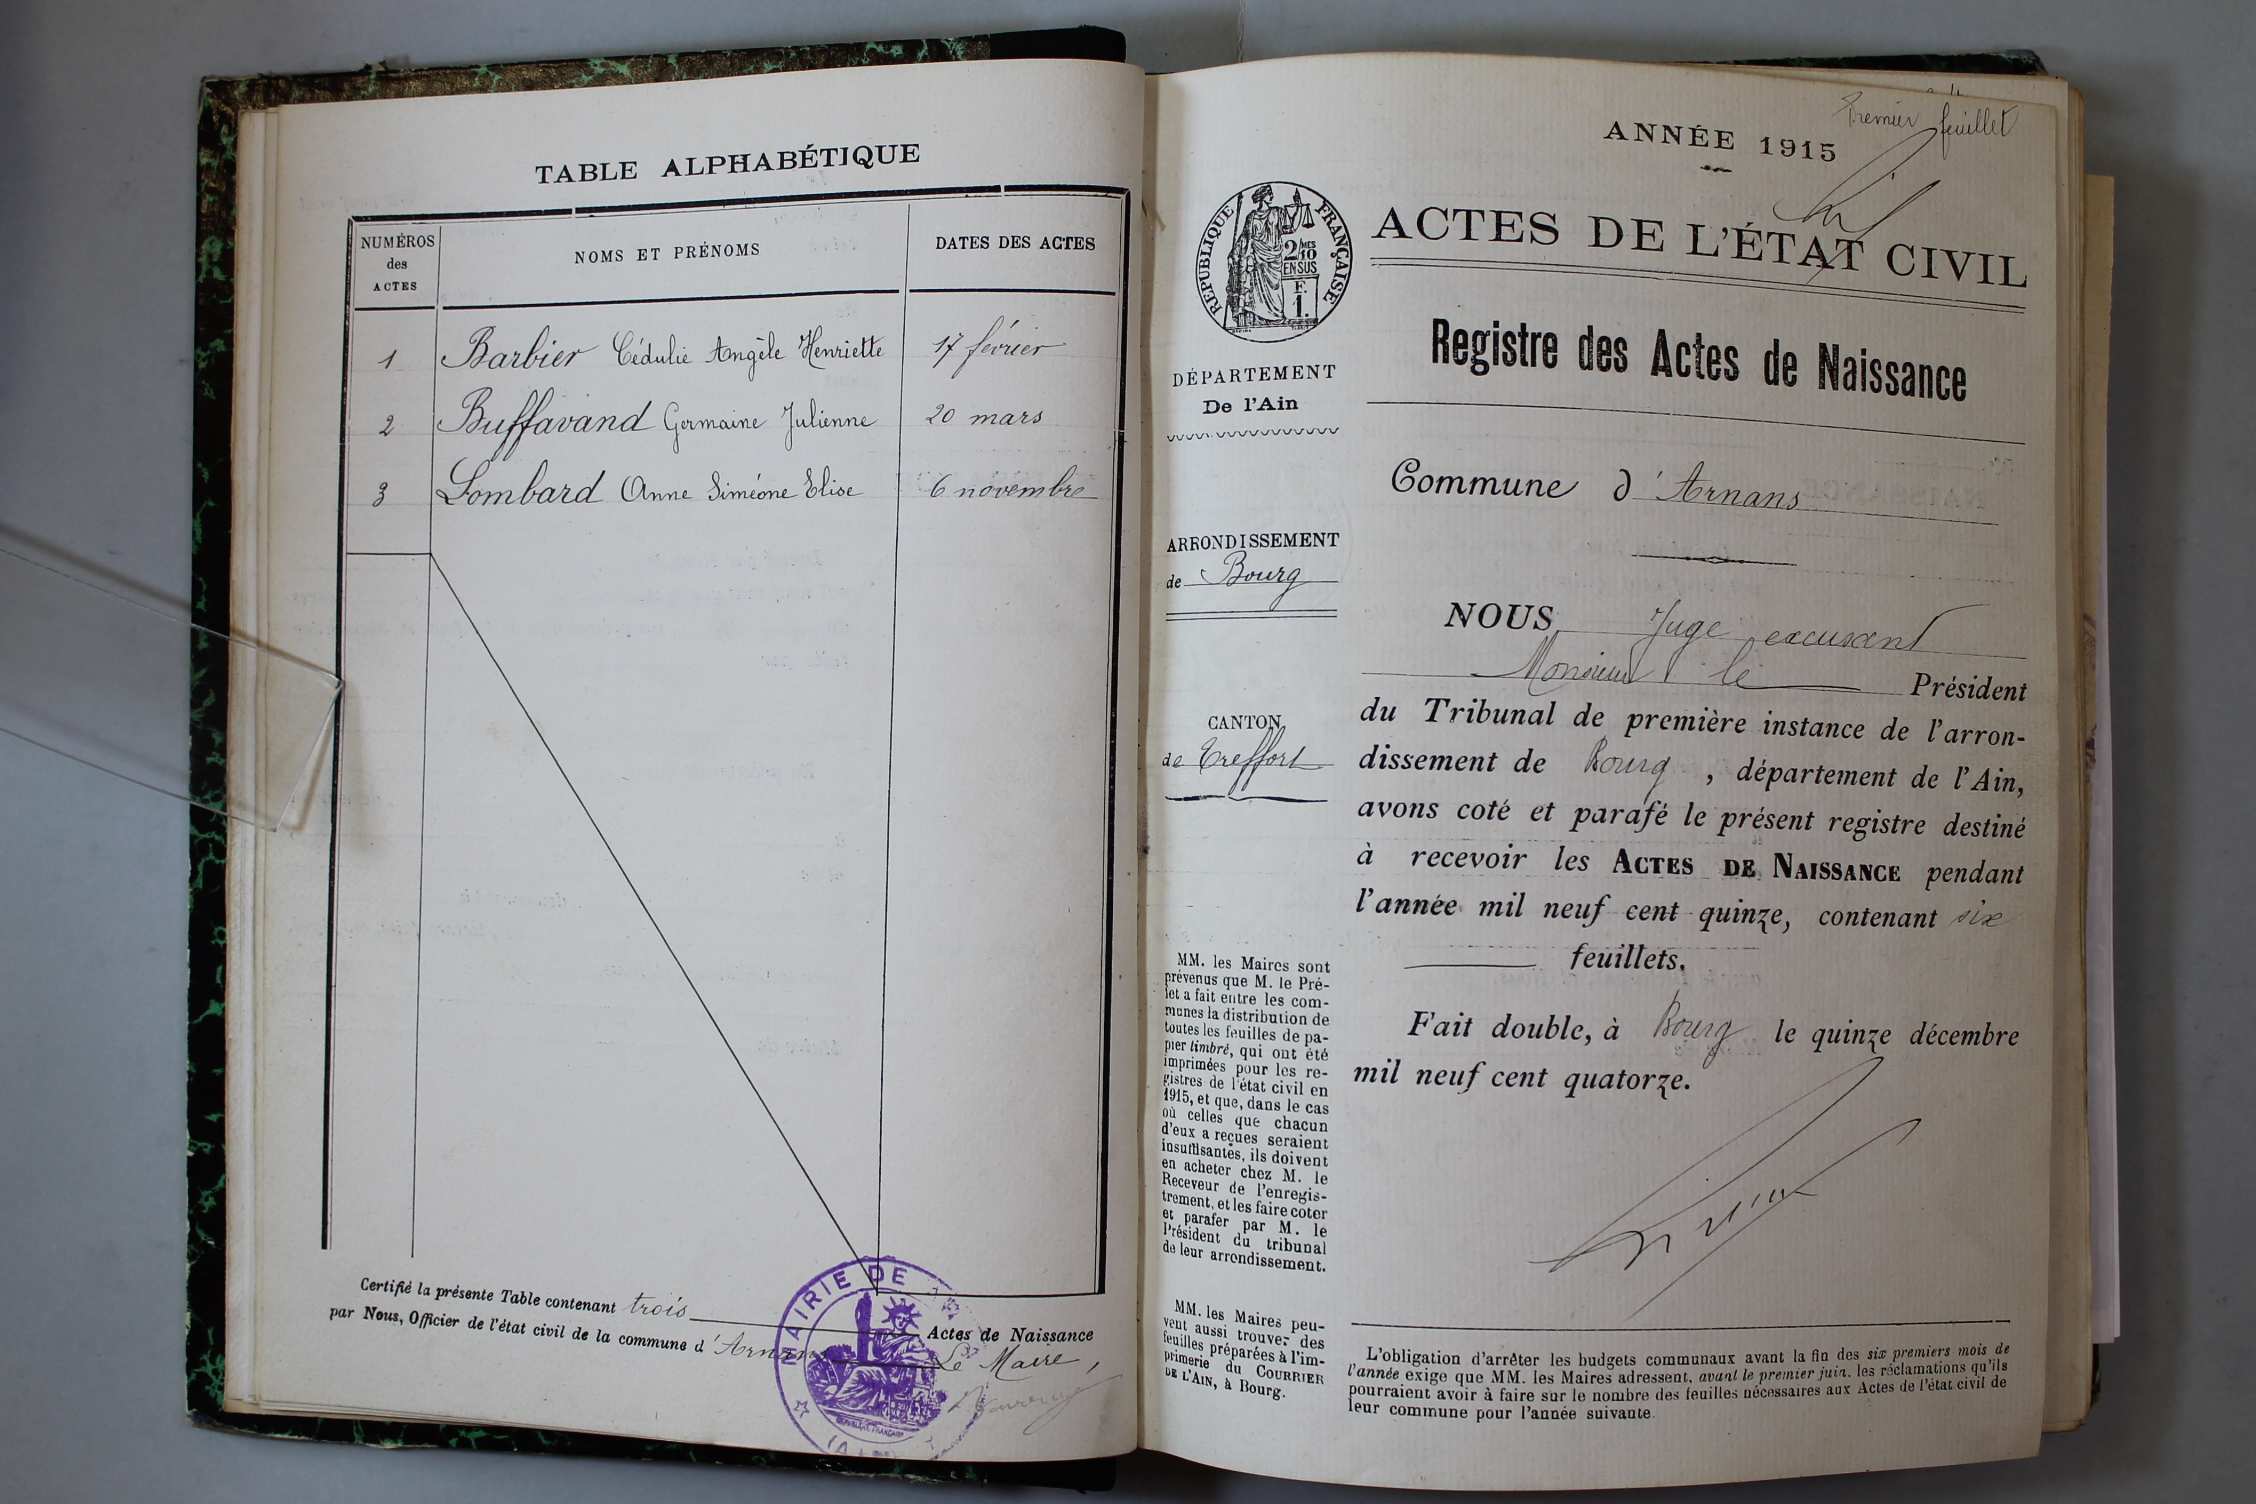 TABLE ALPHABÉTIQUE
NUMÉROS des ACTES
NOMS ET PRÉNOMS
DATES DES ACTES
1 Barbier Cédulie Angèle Henriette 17 février
2 Buffavand Germaine Julienne 20 mars
3 Lombard Anne Siméone Elise 6 novembre
Certifié la présente Table contenant trois Actes de Naissance
par Nous, Officier de l'état civil de la commune d'Arnans
Le Maire,
MAIRIE DE
(AIN)
Premier feuillet
ANNÉE 1915
ACTES DE L'ÉTAT CIVIL
Registre des Actes de Naissance
RÉPUBLIQUE FRANÇAISE
2/10MES
EN SUS
F.
1.
DÉPARTEMENT
De l'Ain
ARRONDISSEMENT
de Bourg
CANTON
de Treffort
MM. les Maires sont
prévenus que M. le Pré-
fet a fait entre les com-
munes la distribution de
toutes les feuilles de pa-
pier timbré, qui ont été
imprimées pour les re-
gistres de l'état civil en
1915, et que, dans le cas
où celles que chacun
d'eux a reçues seraient
insuffisantes, ils doivent
en acheter chez M. le
Receveur de l'enregis-
trement, et les faire coter
et parafer par M. le
Président du tribunal
de leur arrondissement.
MM. les Maires peu-
vent aussi trouver des
feuilles préparées à l'im-
primerie du COURRIER
DE L'AIN, à Bourg.
Commune d'Arnans
NOUS Juge excusant
Monsieur le Président
du Tribunal de première instance de l'arron-
dissement de Bourg, département de l'Ain,
avons coté et parafé le présent registre destiné
à recevoir les ACTES DE NAISSANCE pendant
l'année mil neuf cent quinze, contenant six
feuillets.
Fait double, à Bourg le quinze décembre
mil neuf cent quatorze.
L'obligation d'arrêter les budgets communaux avant la fin des six premiers mois de
l'année exige que MM. les Maires adressent, avant le premier juin, les réclamations qu'ils
pourraient avoir à faire sur le nombre des feuilles nécessaires aux Actes de l'état civil de
leur commune pour l'année suivante.